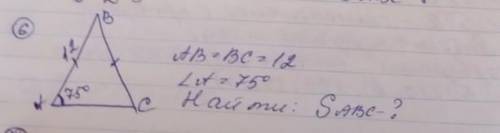 6
B
12
75°
A
C
AB=BC=12
∠A=75°
Найти: SABC-?